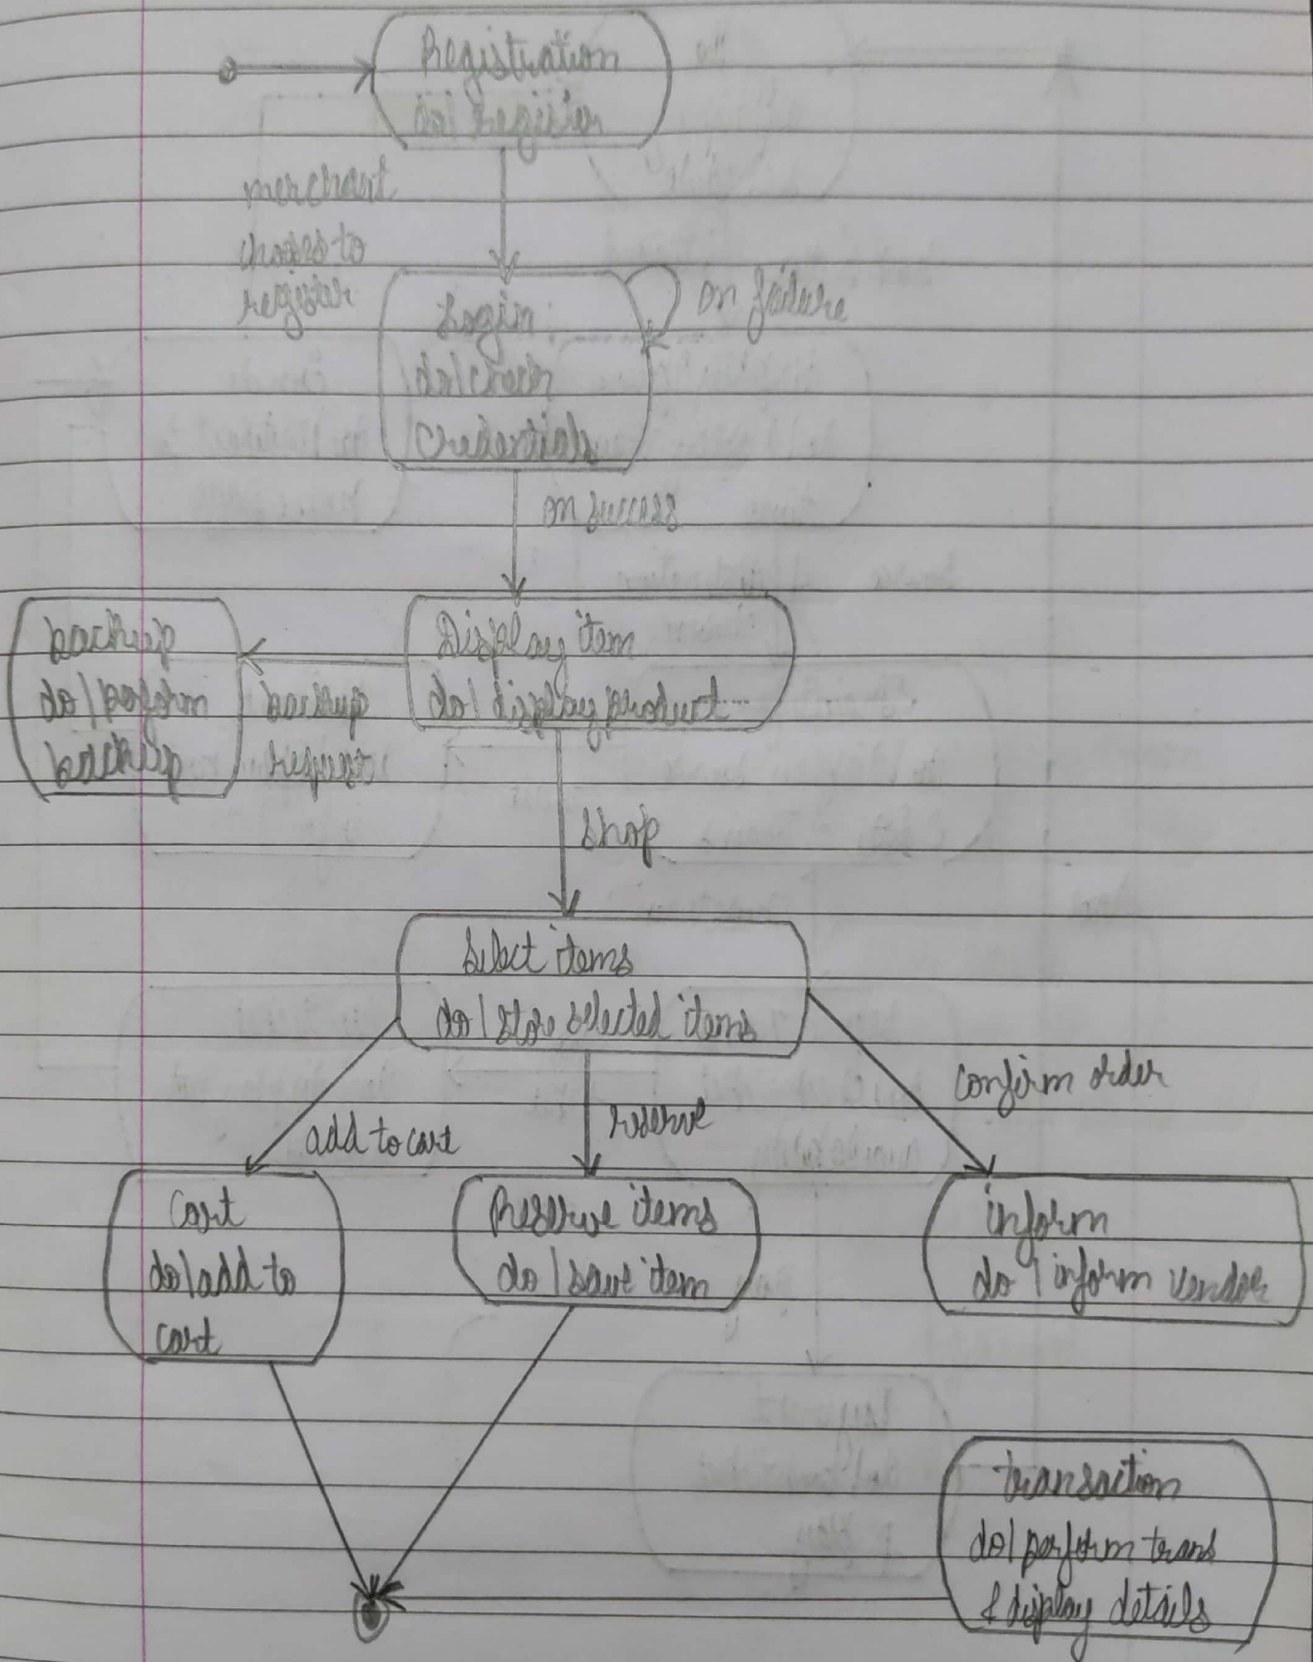 Registration
do/ register
merchant
chooses to
register
Login
do/check
Credentials
on failure
on success
Display item
do/ display product
backup
do/perform
backup
backup
request
shop
Select items
do/ store selected items
add to cart
reserve
confirm order
Cart
do/add to
cart
Reserve items
do/save item
inform
do / inform vendor
transaction
do/perform trans
& display details